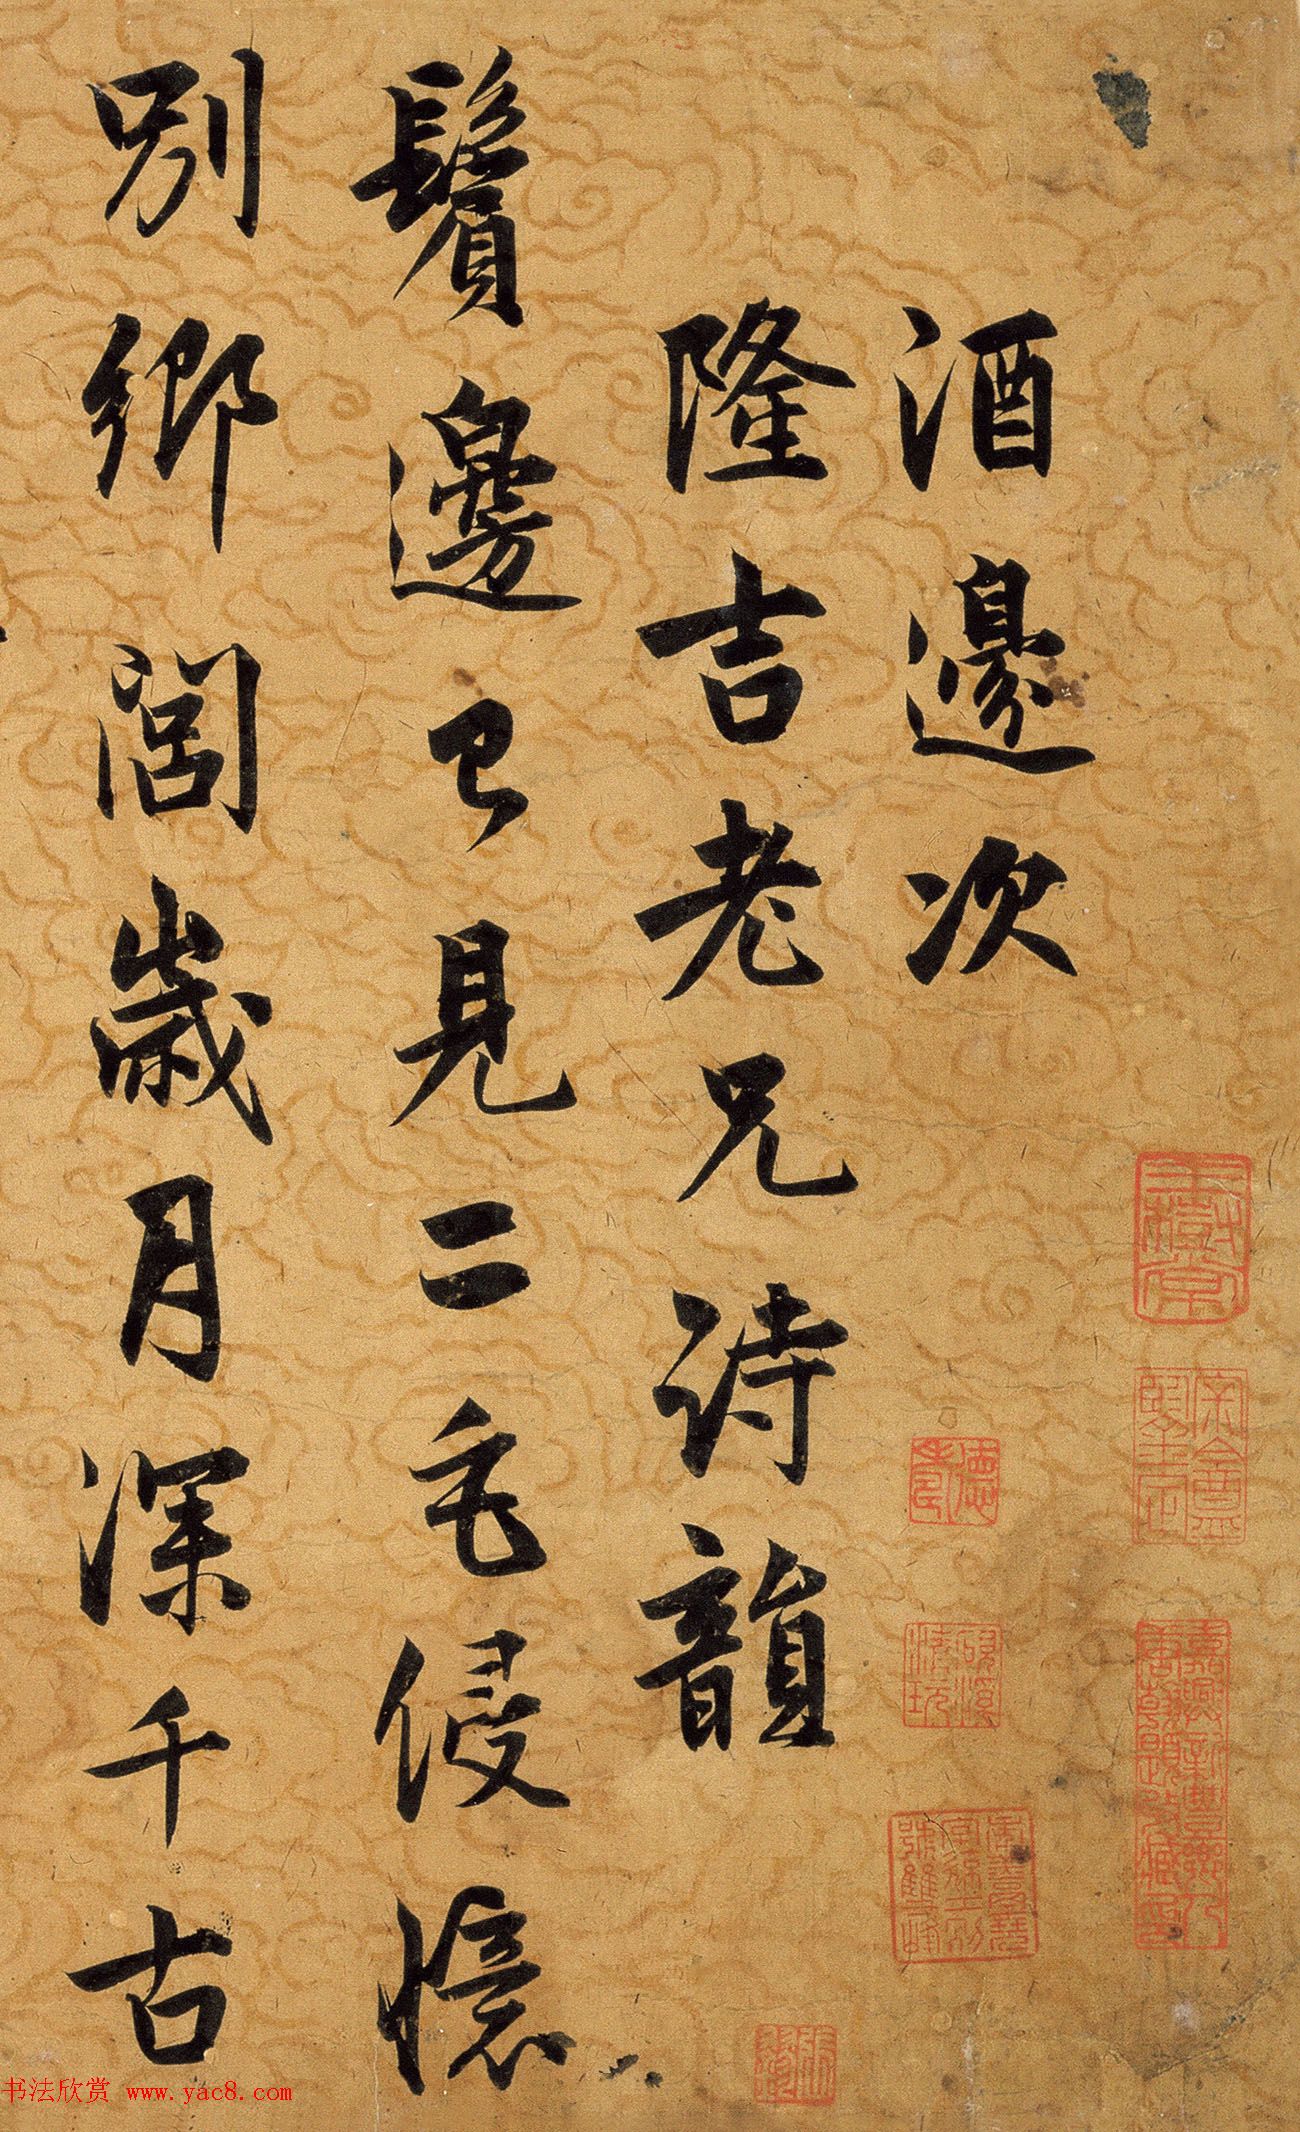 酒邊次
隆吉老兄詩韻
鬢邊已見二毛侵憶
別鄉閭歲月深千古
书法欣赏 www.yac8.com